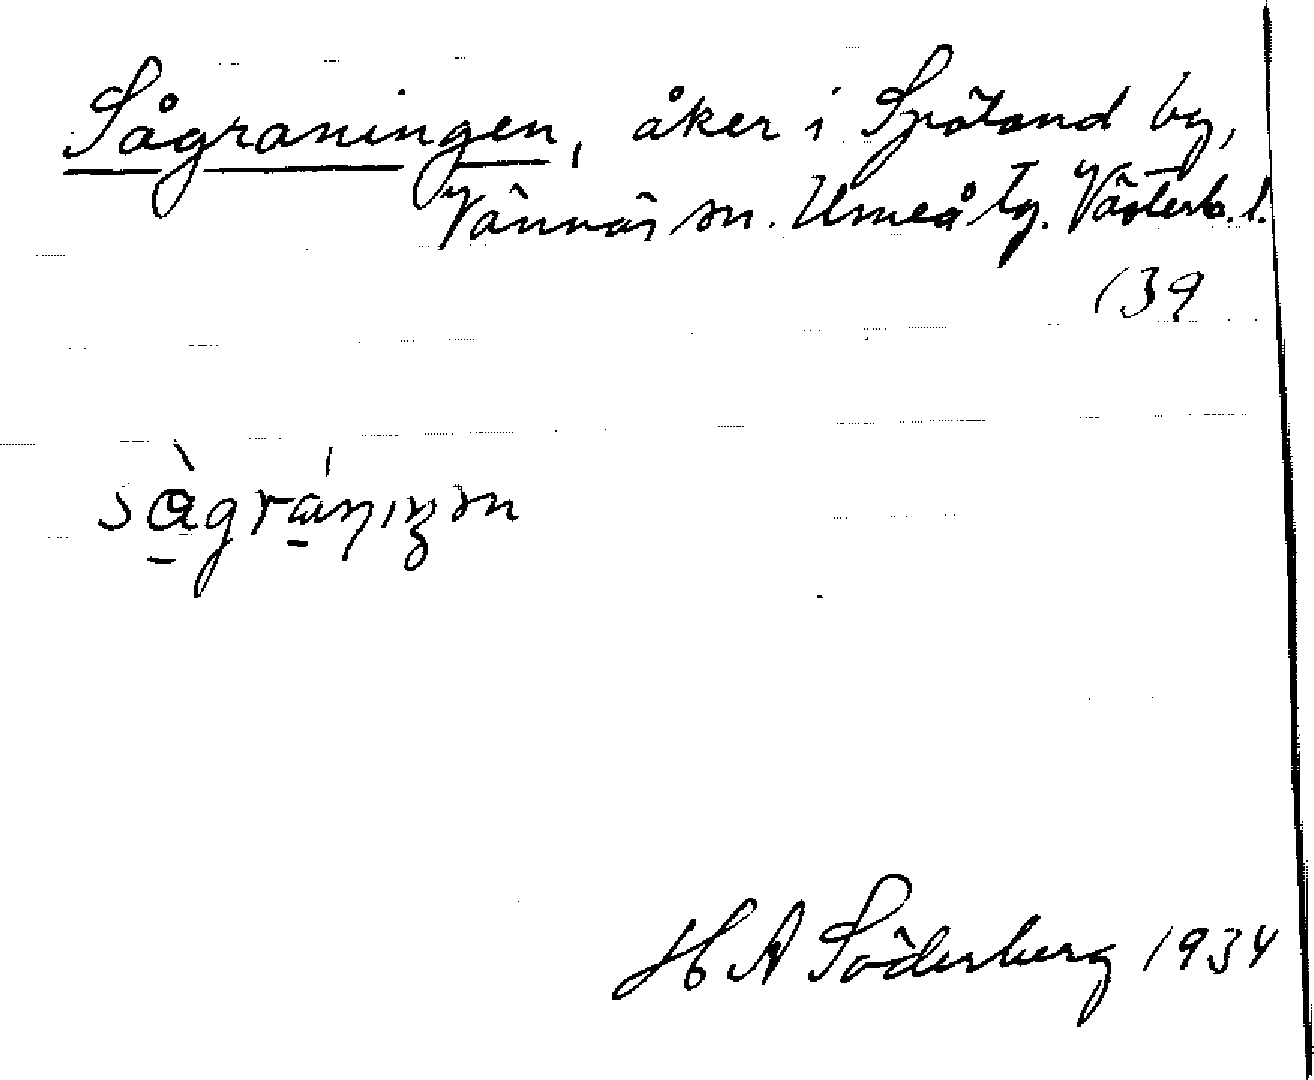 Sågraningen, åker i Spöland by,
Vännäs sn. Umeå tg. Västerb. l.
139
H A Söderberg 1934